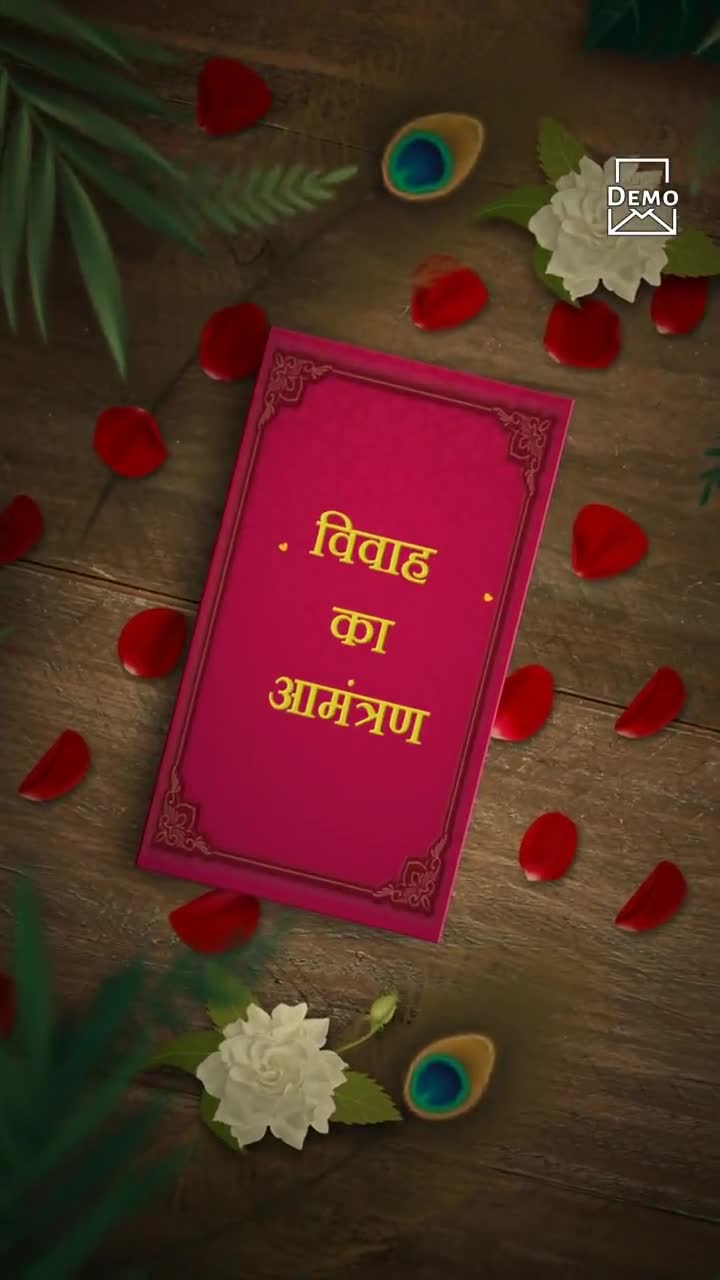 Demo
विवाह
का
आमंत्रण